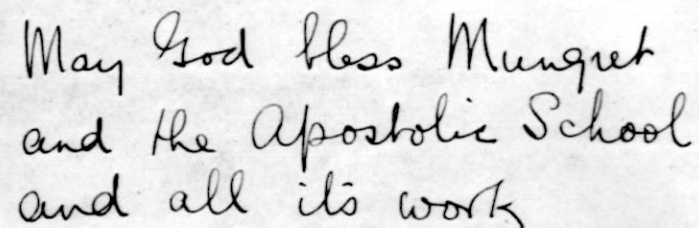 May God bless Mungret
and the Apostolic School
and all it's work